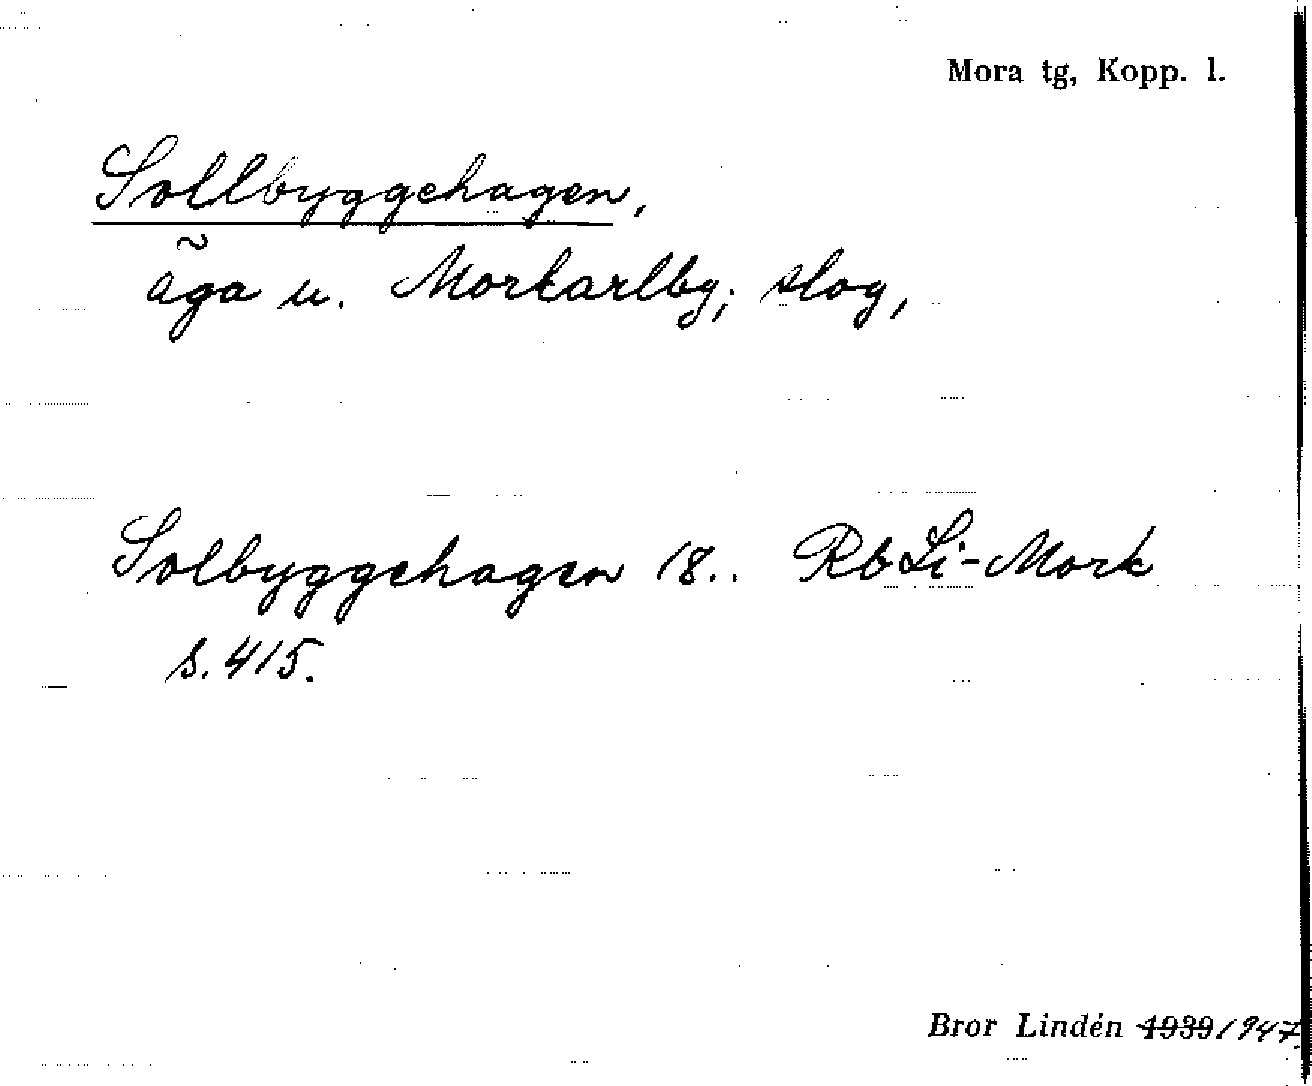 Mora tg, Kopp. l.
Sollbyggehagen,
äga u. Morkarlby; slog,
Solbyggehagen 18.. Rb Li-Mork
s. 415.
Bror Lindén 1939 1947